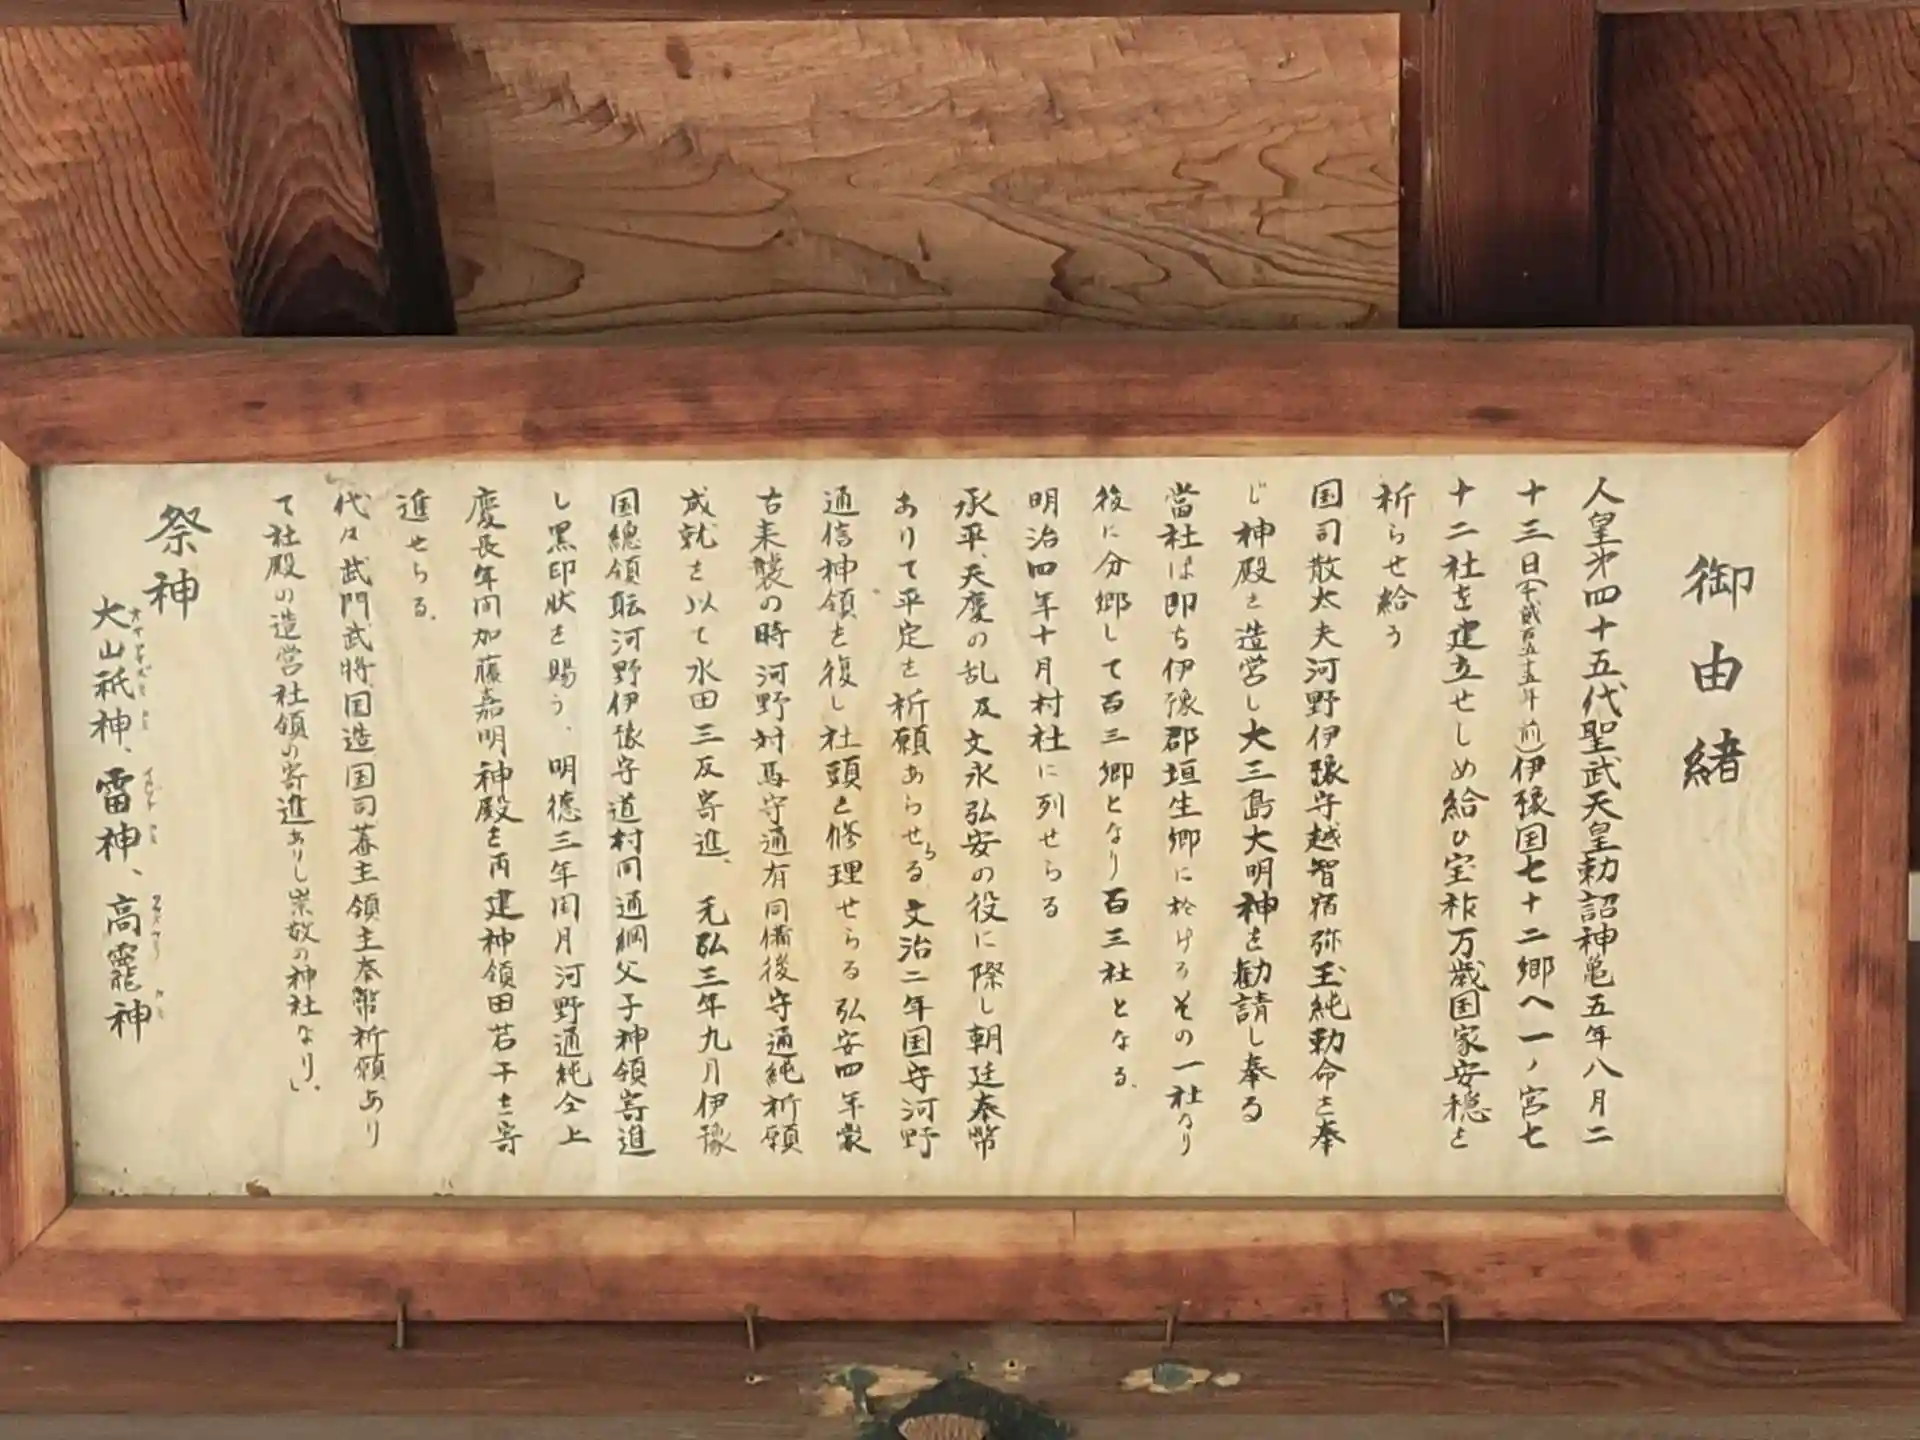 御由緒
人皇第四十五代聖武天皇勅詔神亀五年八月二
十三日(千弐百五十五年前)伊豫国七十二郷へ一ノ宮七
十二社を建立せしめ給ひ宝祚万歳国家安穏を
祈らせ給う
国司散太夫河野伊豫守越智宿弥玉純勅命を奉
じ神殿を造営し大三島大明神を勧請し奉る
當社は即ち伊豫郡垣生郷に於けるその一社なり
後に分郷して百三郷となり百三社となる、
明治四年十月村社に列せらる
承平、天慶の乱及文永弘安の役に際し朝廷奉幣
ありて平定を祈願あらせらる文治二年国守河野
通信神領を復し社頭を修理せらる弘安四年蒙
古来襲の時河野対馬守通有同備後守通純祈願
成就を以て水田三反寄進、元弘三年九月伊豫
国總領職河野伊豫守道村同通綱父子神領寄進
し黒印状を賜う、明徳三年閏月河野通純仝上
慶長年间加藤嘉明神殿を再建神領田若干を寄
進せらる、
代々武門武将国造国司藩主領主奉幣祈願あり
て社殿の造営社領の寄進ありし崇敬の神社なり、
祭神
大山祇神、雷神、高龗神